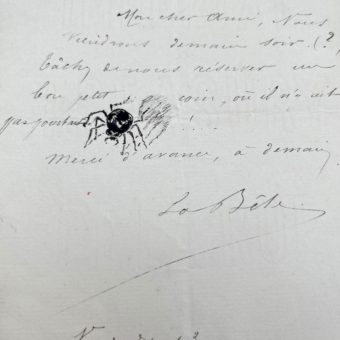 Mon cher Ami, Nous
viendrons demain soir. (?)
tâchez de nous réserver un
bon petit coin, où il n'y ait
pas pourtant !
Merci d'avance, à demain
La Bête